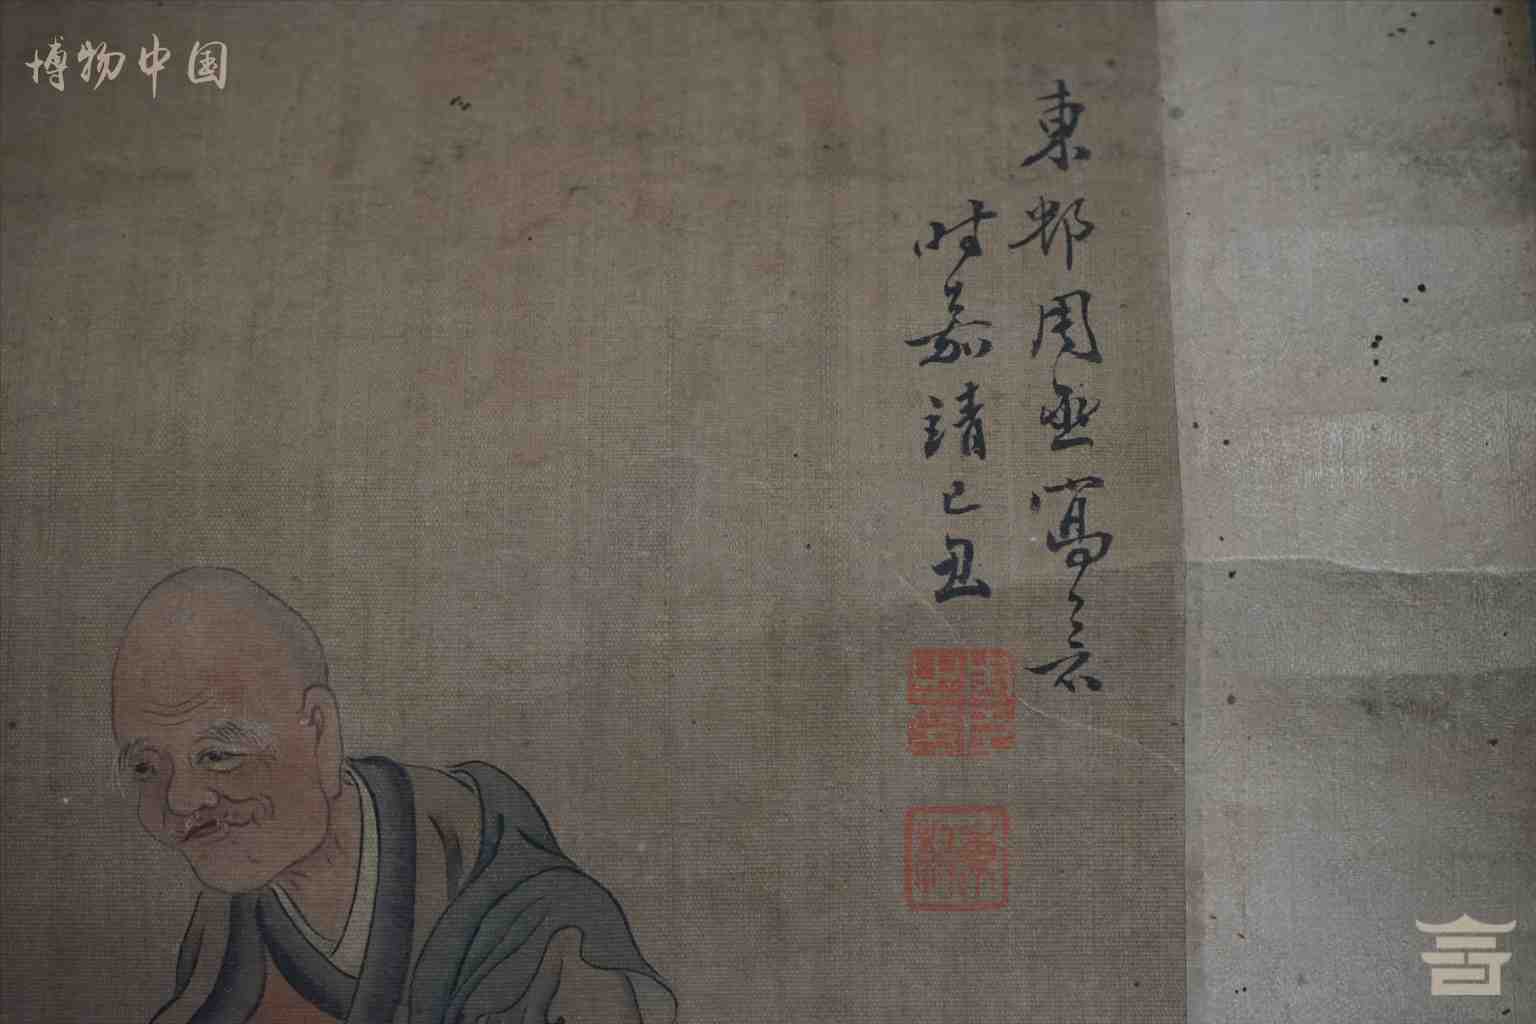 博物中国
東邨周臣寫意
時嘉靖己丑